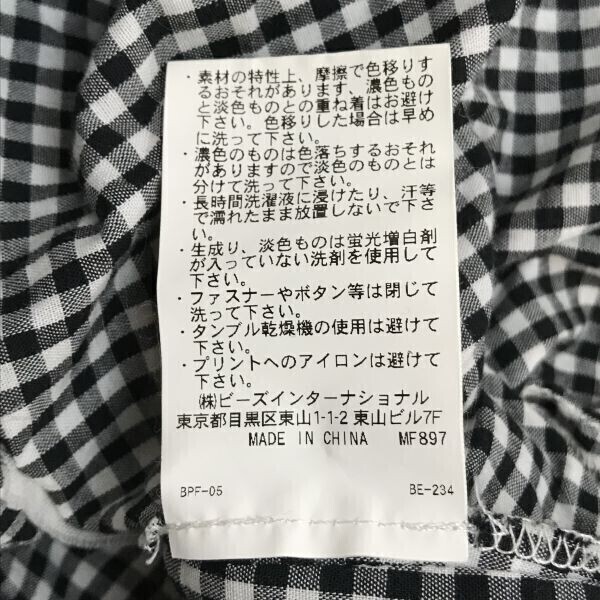 ・素材の特性上、摩擦で色移りす
るおそれがあります、濃色もの
と淡色ものとの重ね着はお避け
下さい。色移りした場合は早め
に洗って下さい。
・濃色のものは色落ちするおそれ
がありますので淡色のものとは
分けて洗って下さい。
・長時間洗濯液に浸けたり、汗等
で濡れたまま放置しないで下さ
い。
・生成り、淡色ものは蛍光増白剤
が入っていない洗剤を使用して
下さい。
・ファスナーやボタン等は閉じて
洗って下さい。
・タンブル乾燥機の使用は避けて
下さい。
・プリントへのアイロンは避けて
下さい。
㈱ビーズインターナショナル
東京都目黒区東山1-1-2 東山ビル7F
MADE IN CHINA MF897
BPF-05 BE-234